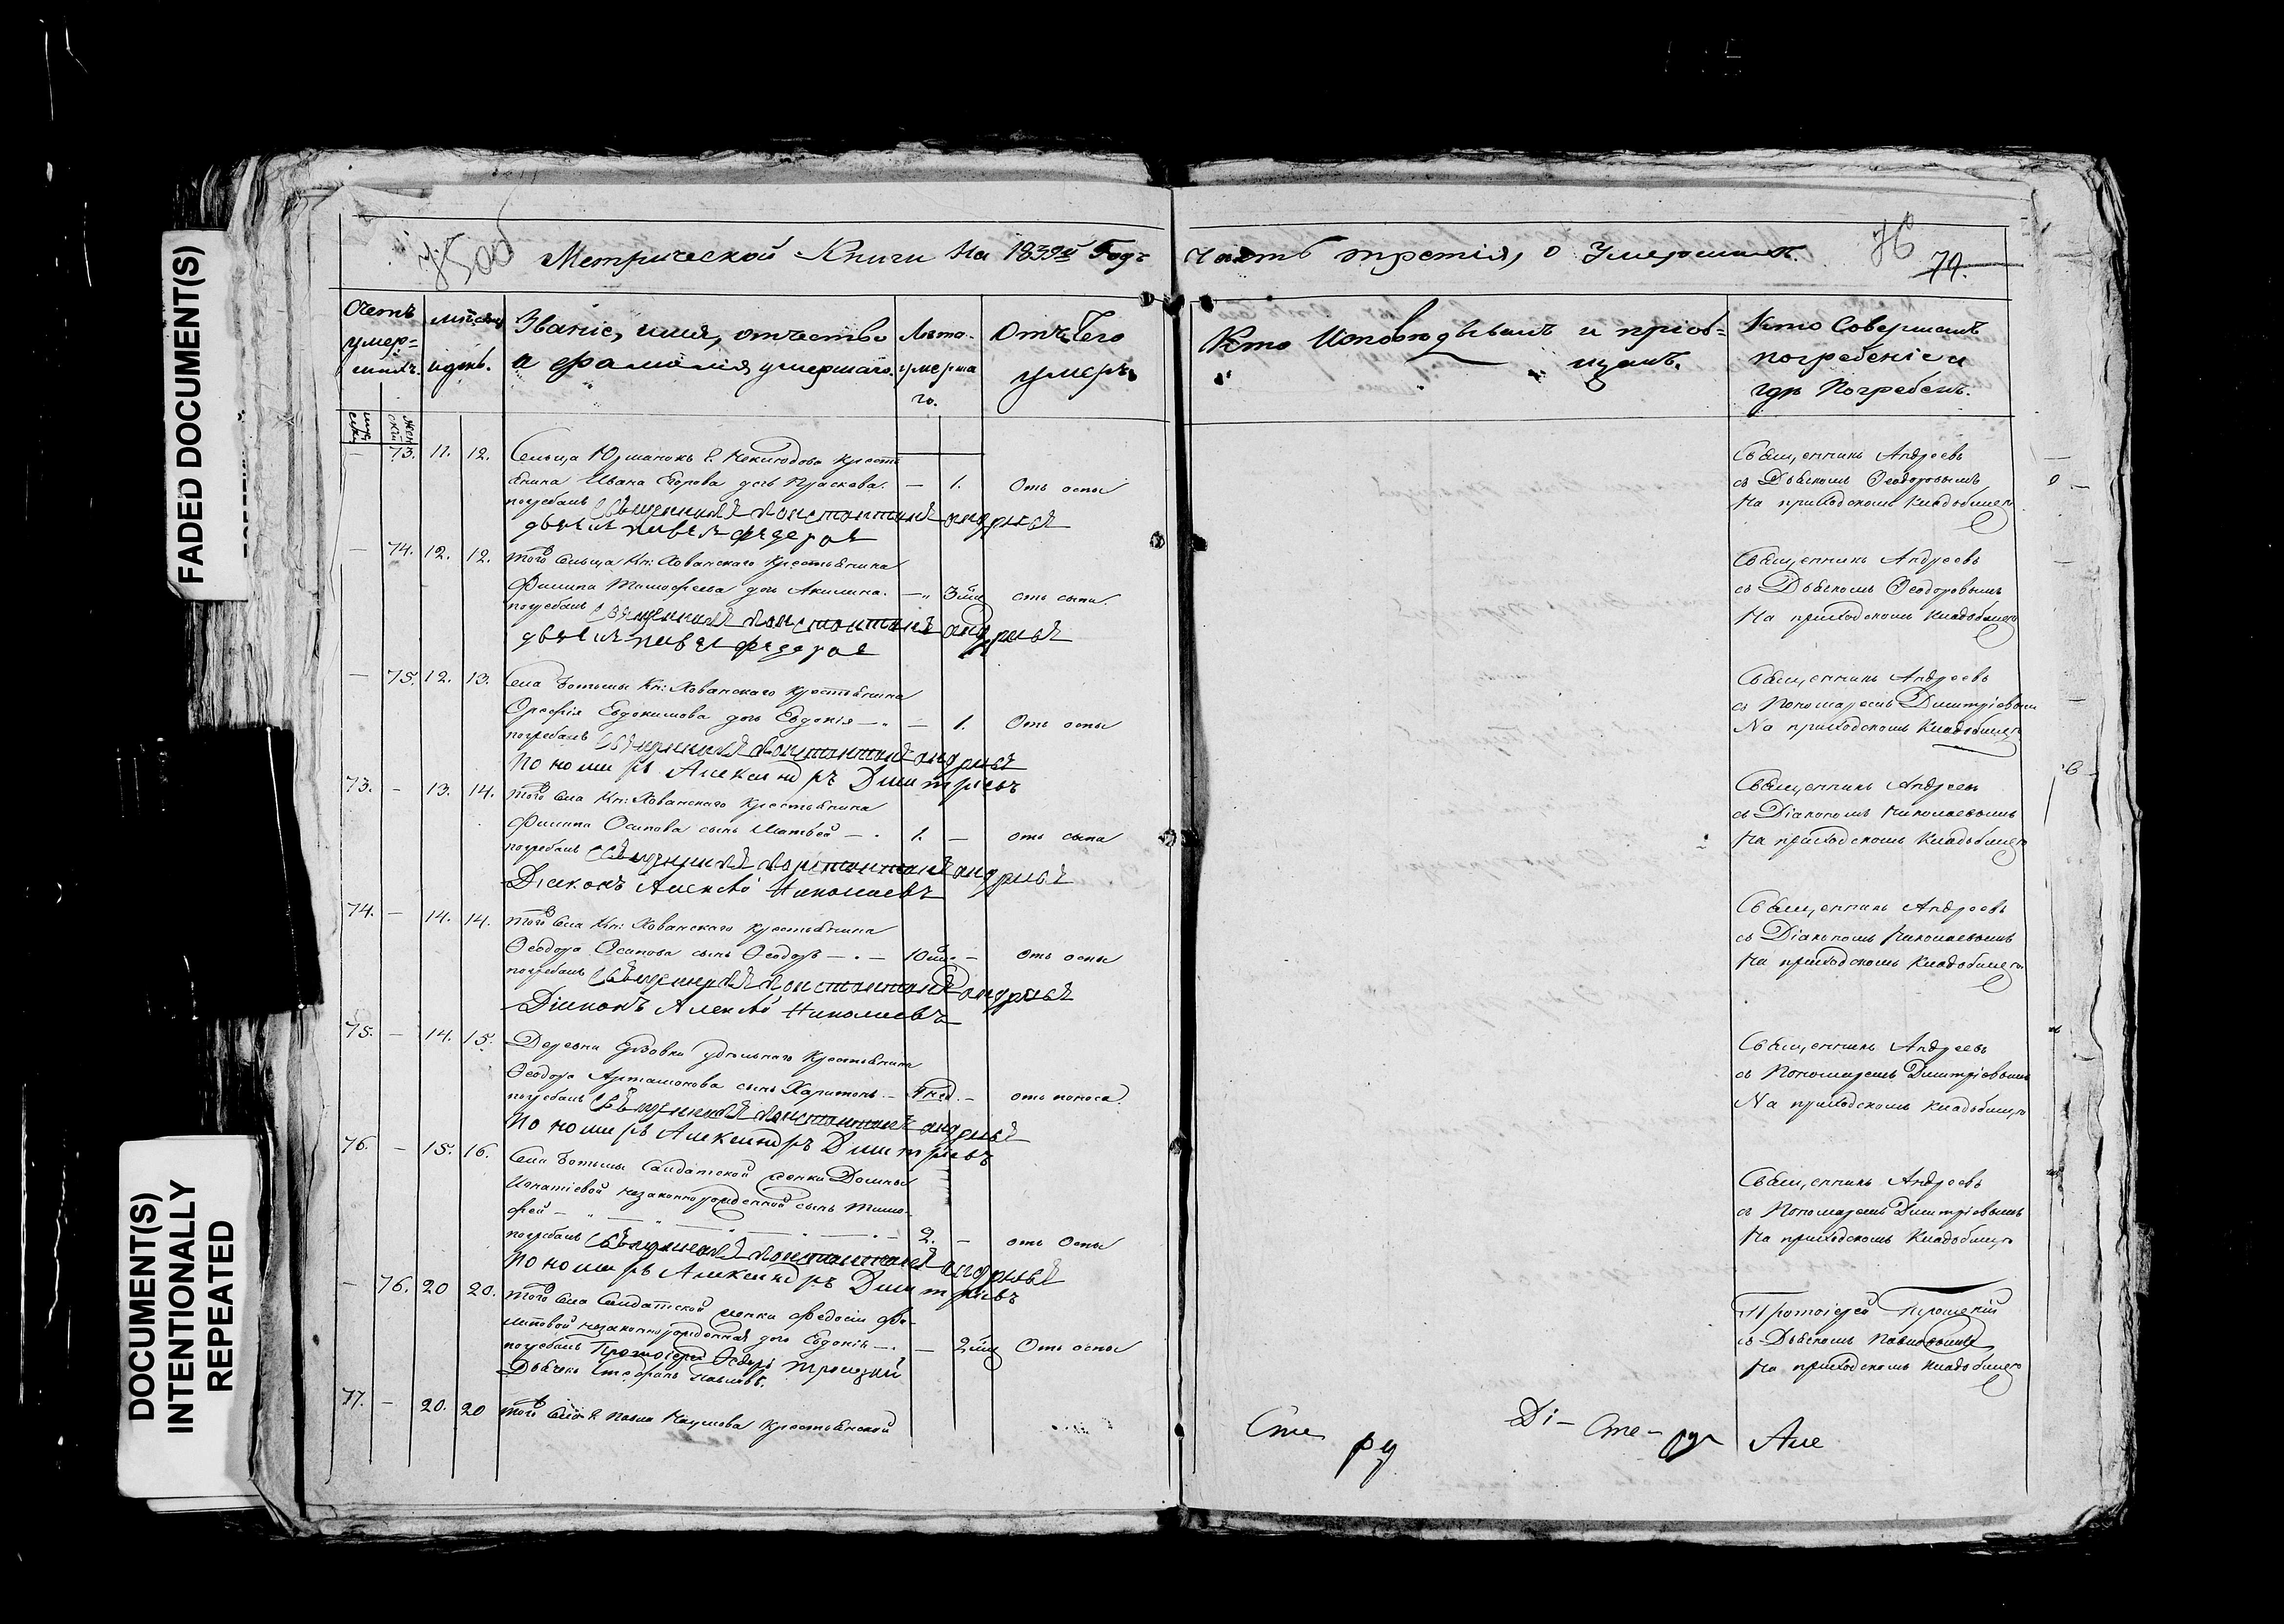 FADED DOCUMENT(S)
DOCUMENT(S)
INTENTIONALLY
REPEATED
Метрической Книги на 1839й Годъ
часть третія, о Умершихъ.
76
79.
Счетъ умер=шихъ.
мѣсяцъ и день.
Званіе, имя, отчество и фамилія умершаго.
Лѣта умершаго.
Отъ чего умеръ
Кто Исповѣдывалъ и пріоб=щалъ.
Кто Совершалъ погребеніе и гдѣ Погребенъ.
— 73. 11. 12. Сельца Юрманокъ Г. Неклюдова Крестья
янина Ивана Егорова дочь Праскова. — 1. Отъ оспы
погребалъ Священникъ Константинъ Андреевъ
дьячекъ Павелъ Федоровъ
Священникъ Андреевъ
съ Дьячкомъ Ѳеодоровымъ
На приходскомъ кладбищѣ
— 74. 12. 12. того Сельца Кн: Хованскаго Крестьянина
Филипа Тимофеева дочь Акилина. — 3 мѣс отъ сыпи.
погребалъ Священникъ Константинъ Андреевъ
дьячекъ Павелъ Федоровъ
Священникъ Андреевъ
съ Дьячкомъ Ѳеодоровымъ
На приходскомъ кладбищѣ
— 75. 12. 13. Села Ботьмы Кн: Хованскаго крестьянина
Орефія Евдокимова дочь Евдокія — — 1. Отъ оспы
погребалъ Священникъ Константинъ Андреевъ
Пономарь Александръ Димитріевъ
Священникъ Андреевъ
съ Пономаремъ Димитріевымъ
На приходскомъ кладбищѣ
73. — 13. 14. того Села Кн: Хованскаго Крестьянина
Филипа Осипова сынъ Матвей — 1. — отъ сыпи
погребалъ Священникъ Константинъ Андреевъ
Діаконъ Алексѣй Николаевъ
Священникъ Андреевъ
съ Діакономъ Николаевымъ
На приходскомъ кладбищѣ
74. — 14. 14. того Села Кн: Хованскаго крестьянина
Ѳеодора Осипова сынъ Ѳеодоръ — 10 мѣс — отъ оспы
погребалъ Священникъ Константинъ Андреевъ
Діаконъ Алексѣй Николаевъ
Священникъ Андреевъ
съ Діакономъ Николаевымъ
На приходскомъ кладбищѣ
75. — 14. 15. Деревни удѣльнаго Крестьянина
Ѳеодора Артамонова сынъ Харитонъ — нед. — отъ поноса
погребалъ Священникъ Константинъ Андреевъ
Пономарь Александръ Димитріевъ
Священникъ Андреевъ
съ Пономаремъ Димитріевымъ
На приходскомъ кладбищѣ
76. — 15. 16. Села Ботьмы Салдатской женки Домны
Игнатіевой незаконнорожденной сынъ Тимо-
фей — 2. — отъ Оспы
погребалъ Священникъ Константинъ Андреевъ
Пономарь Александръ Димитріевъ
Священникъ Андреевъ
съ Пономаремъ Димитріевымъ
На приходскомъ кладбищѣ
— 76. 20 20. того Села Салдатской женки Федосьи Фи-
липовой незаконнорожденная дочь Евдокія — — 2 мѣс Отъ оспы
погребалъ Протоіерей Ѳедоръ Троицкій
Дьячекъ Стефанъ Павловъ.
Протоіерей Троицкій
съ Дьячкомъ Павловымъ
На приходскомъ кладбищѣ
77. — 20. 20 того Села Г. Павла Наумова крестьянской
Сте
ру
Ді-
Сте-
ру
Але